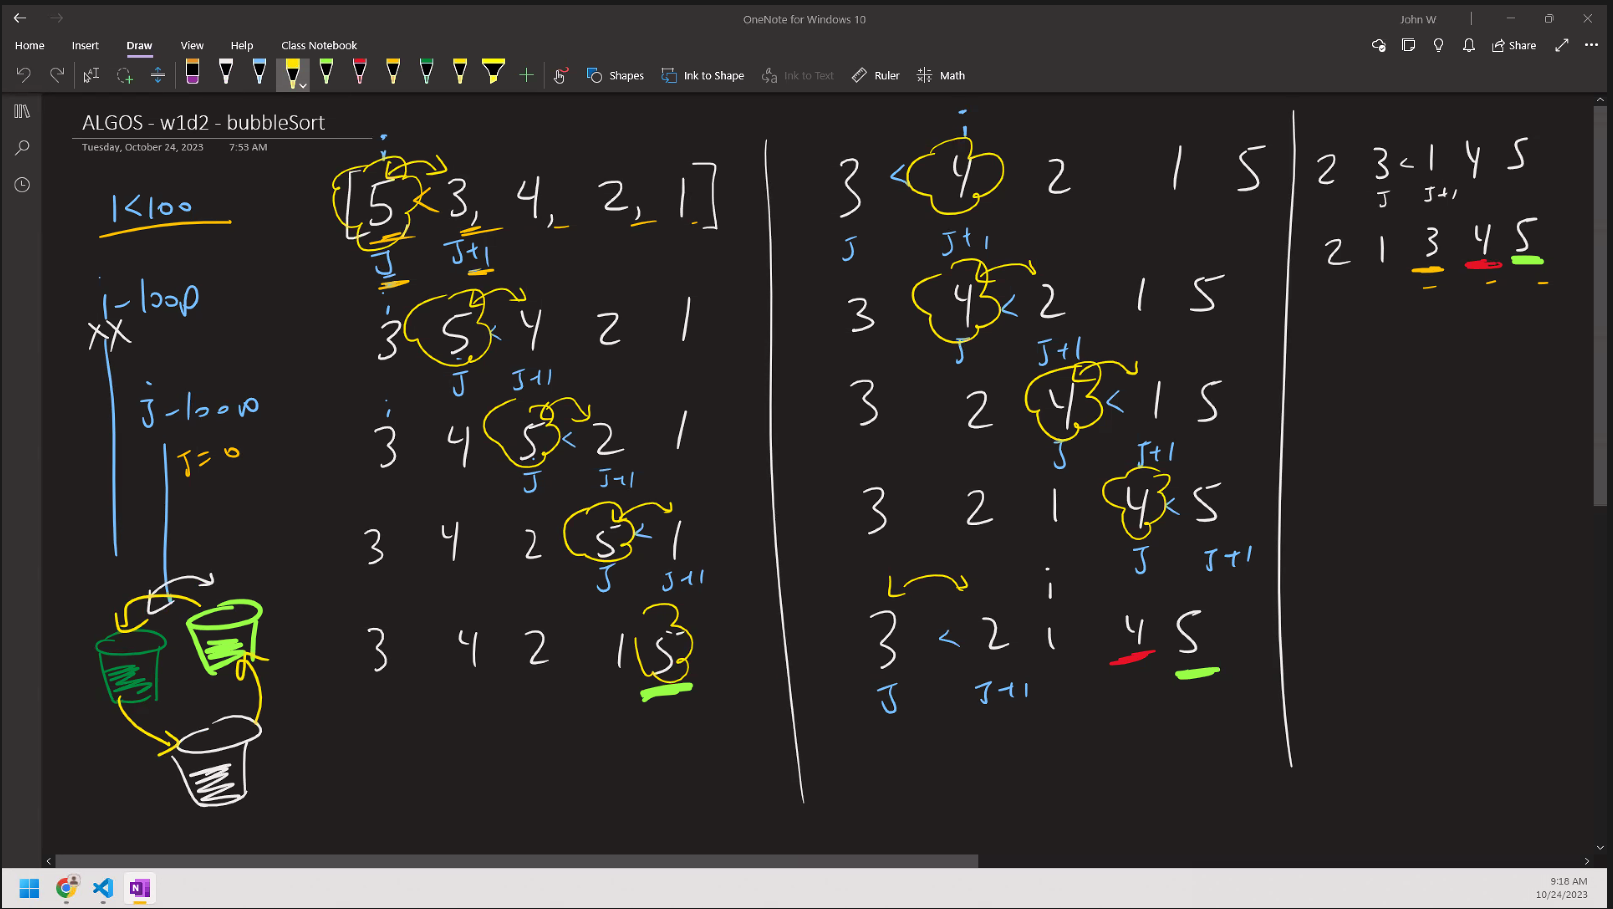 OneNote for Windows 10
John W
Home Insert Draw View Help Class Notebook
Share
Shapes Ink to Shape Ink to Text Ruler Math
ALGOS - w1d2 - bubbleSort
Tuesday, October 24, 2023 7:53 AM
1<100
i-loop
XX
j-loop
J=0
i
[5 < 3, 4, 2, 1]
J J+1
i
3 5 < 4 2 1
J J+1
i
3 4 5 < 2 1
J J+1
3 4 2 5 < 1
J J+1
3 4 2 1 5
i
3 < 4 2 1 5
J J+1
3 4 < 2 1 5
J J+1
3 2 4 < 1 5
J J+1
3 2 1 4 < 5
J J+1
i
3 < 2 1 4 5
J J+1
2 3 < 1 4 5
J J+1
2 1 3 4 5
9:18 AM
10/24/2023